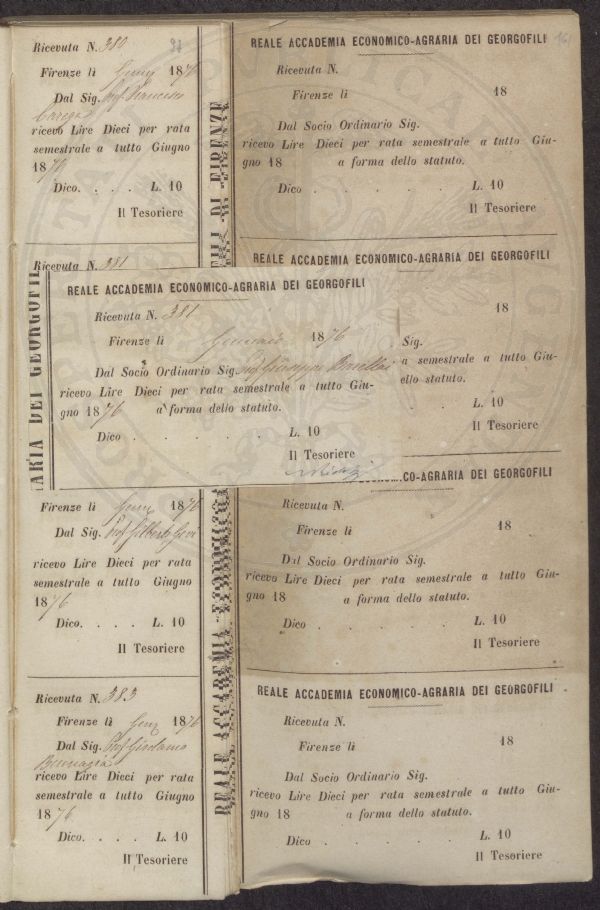 Ricevuta N. 380
Firenze li 1876
Dal Sig. Prof. Francesco
ricevo Lire Dieci per rata
semestrale a tutto Giugno
1876
Dico. . . . L. 10
Il Tesoriere
Ricevuta N. 381
Firenze li 1876
Dal Sig. Prof. Gilberto Govi
ricevo Lire Dieci per rata
semestrale a tutto Giugno
1876
Dico. . . . L. 10
Il Tesoriere
Ricevuta N. 383
Firenze li 1876
Dal Sig. Prof. Girolamo
Buonazia
ricevo Lire Dieci per rata
semestrale a tutto Giugno
1876
Dico. . . . L. 10
Il Tesoriere
ARIA DEI GEORGOFIL
FILI DI FIRENZE
REALE ACCADEMIA ECONOMICA
REALE ACCADEMIA ECONOMICO-AGRARIA DEI GEORGOFILI
Ricevuta N. 381
Firenze li Gennaio 1876
Dal Socio Ordinario Sig. Prof. Giuseppe
ricevo Lire Dieci per rata semestrale a tutto Giu-
gno 1876 a forma dello statuto.
Dico . . . . . L. 10
Il Tesoriere
REALE ACCADEMIA ECONOMICO-AGRARIA DEI GEORGOFILI 161
Ricevuta N.
Firenze li 18
Dal Socio Ordinario Sig.
ricevo Lire Dieci per rata semestrale a tutto Giu-
gno 18 a forma dello statuto.
Dico . . . . . L. 10
Il Tesoriere
REALE ACCADEMIA ECONOMICO-AGRARIA DEI GEORGOFILI
18
Sig.
a semestrale a tutto Giu-
ello statuto.
. . L. 10
Il Tesoriere
CO-AGRARIA DEI GEORGOFILI
Ricevuta N.
Firenze li 18
Dal Socio Ordinario Sig.
ricevo Lire Dieci per rata semestrale a tutto Giu-
gno 18 a forma dello statuto.
Dico . . . . . L. 10
Il Tesoriere
REALE ACCADEMIA ECONOMICO-AGRARIA DEI GEORGOFILI
Ricevuta N.
Firenze li 18
Dal Socio Ordinario Sig.
ricevo Lire Dieci per rata semestrale a tutto Giu-
gno 18 a forma dello statuto.
Dico . . . . . L. 10
Il Tesoriere